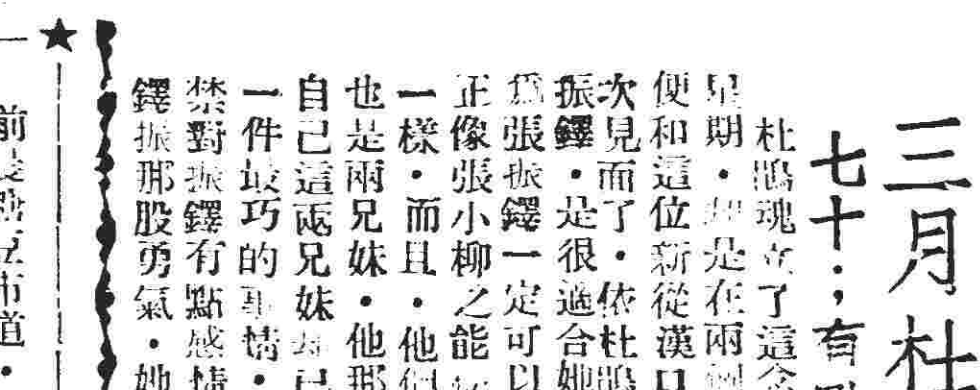 三月杜
七十；有
杜鵑魂立了這
星期·却是在兩個
便和這位新從漢口
次見面了·依杜鵑
振鐸·是很適合她
爲張振鐸一定可以
正像張小柳之能
一樣·而且·他們
也是兩兄妹·他那
自己這兩兄妹却已
一件最巧的事情·
禁對振鐸有點感情
鐸振那股勇氣·她
前
市道·